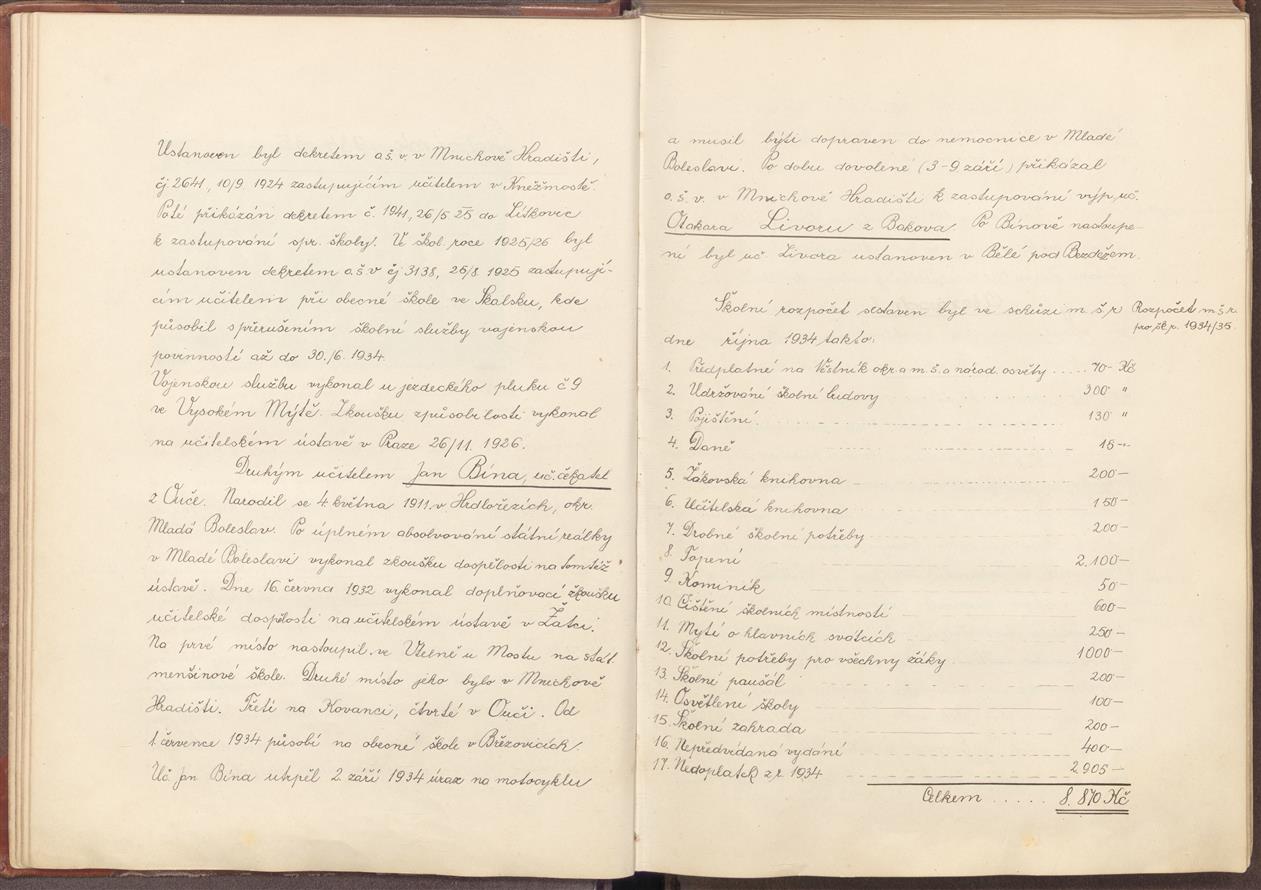 Ustanoven byl dekretem o.š.v. v Mnichově Hradišti,
čj 2641, 10/9 1924 zastupujícím učitelem v Kněžmostě.
Poté přikázán dekretem č. 1941, 26/5 25 do Lítkovic
k zastupování spr. školy. Ve škol. roce 1925/26 byl
ustanoven dekretem o.š.v čj 3138, 25/8. 1925 zastupují-
cím učitelem při obecné škole ve Skalsku, kde
působil s přerušením školní služby vojenskou
povinností až do 30./6. 1934.
Vojenskou službu vykonal u jezdeckého pluku č 9
ve Vysokém Mýtě. Zkoušku způsobilosti vykonal
na učitelském ústavě v Praze 26/11. 1926.
Druhým učitelem Jan Bína, uč. čekatel
z Ouče. Narodil se 4 května 1911 v Hrdlořezích, okr.
Mladá Boleslav. Po úplném absolvování státní reálky
v Mladé Boleslavi vykonal zkoušku dospělosti na tomtéž
ústavě. Dne 16. června 1932 vykonal doplňovací zkoušku
učitelské dospělosti na učitelském ústavě v Žatci.
Na prvé místo nastoupil ve Utelně u Mostu na stát.
menšinové škole. Druhé místo jeho bylo v Mnichově
Hradišti. Třetí na Kovanci, čtvrté v Ouči. Od
1. července 1934 působí na obecné škole v Březovicích.
Uč Jan Bína utrpěl 2. září 1934 úraz na motocyklu
a musil býti dopraven do nemocnice v Mladé
Boleslavi. Po dobu dovolené (3-9 září) přikázal
o.š.v. v Mnichově Hradišti k zastupování výp. uč.
Otakara Livoru z Bakova. Po Bínově nastoupe-
ní byl uč Livora ustanoven v Bělé pod Bezdězem.
Školní rozpočet sestaven byl ve schůzi m.š.r
Rozpočet m š.r.
pro šk.r. 1934/35.
dne října 1934 takto:
1. Předplatné na Věstník okr. a m.š. a národ. osvěty ..... 70- Kč
2. Udržování školní budovy 300 "
3. Pojištění 130 "
4. Daně 15-
5. Žákovská knihovna 200-
6. Učitelská knihovna 150-
7. Drobné školní potřeby 200-
8. Topení 2.100-
9. Kominík 50-
10. Čištění školních místností 600-
11. Mytí o hlavních svátcích 250-
12. Školní potřeby pro všechny žáky 1000-
13. Školní paušál 200-
14. Osvětlení školy 100-
15. Školní zahrada 200-
16. Nepředvídaná vydání 400-
17. Nedoplatek z r. 1934 2905-
Celkem ..... 8.870 Kč